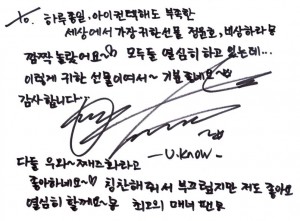 To. 하루종일, 아이컨택해도 부족한
세상에서 가장 귀한선물 정윤호, 비상하라
깜짝 놀랐어요~ 모두들 열심히 하고 있는데...
이렇게 귀한 선물이여서~ 기분 좋네요~
감사합니다..
-U.know-
다들 우와~ 째즈화라고
좋아하네요~ 칭찬해줘서 부끄럽지만 저도 좋아요
열심히 할께요~ 최고의 매너 팬